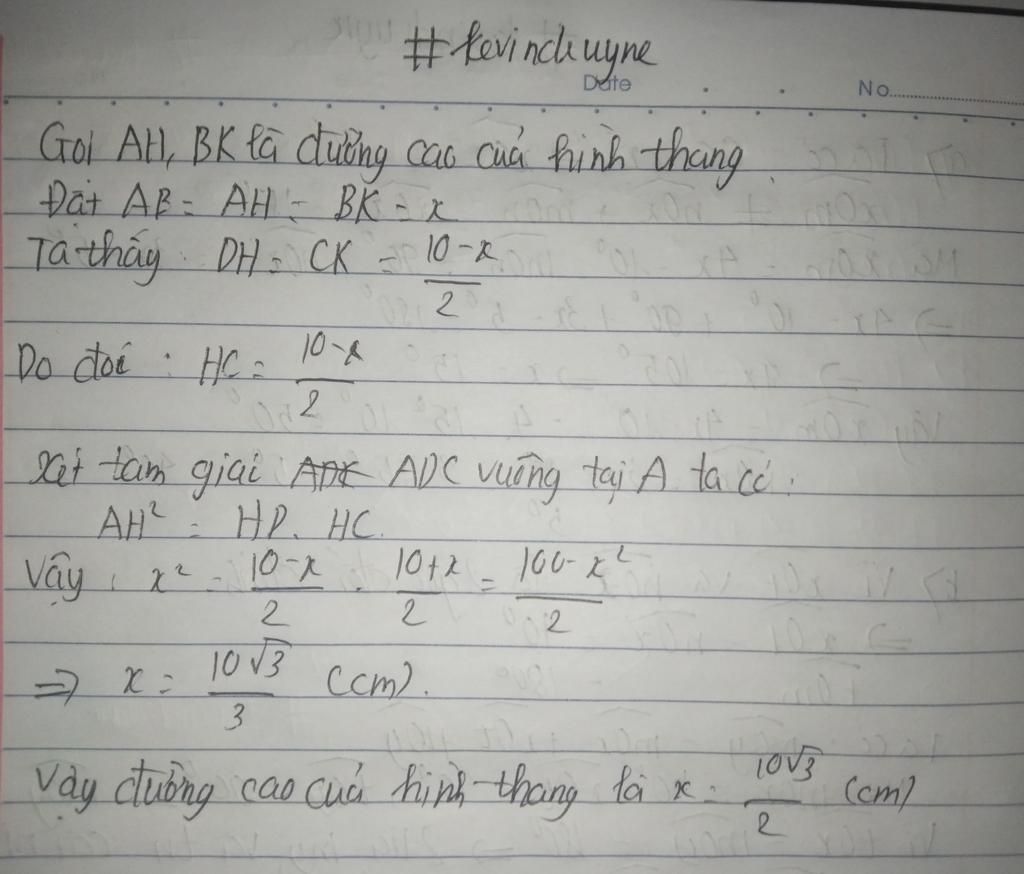 #kevinchuyne
Date No
Gọi AH, BK là đường cao của hình thang
Đặt AB = AH = BK = x
Ta thấy DH = CK = \frac{10-x}{2}
Do đó : HC = \frac{10-x}{2}
Xét tam giai ADC vuông tại A ta có :
AH² = HD. HC.
Vậy : x² = \frac{10-x}{2} . \frac{10+x}{2} = \frac{100-x²}{2}
=> x = \frac{10√3}{3} (cm).
Vậy đường cao của hình thang là x = \frac{10√3}{2} (cm)